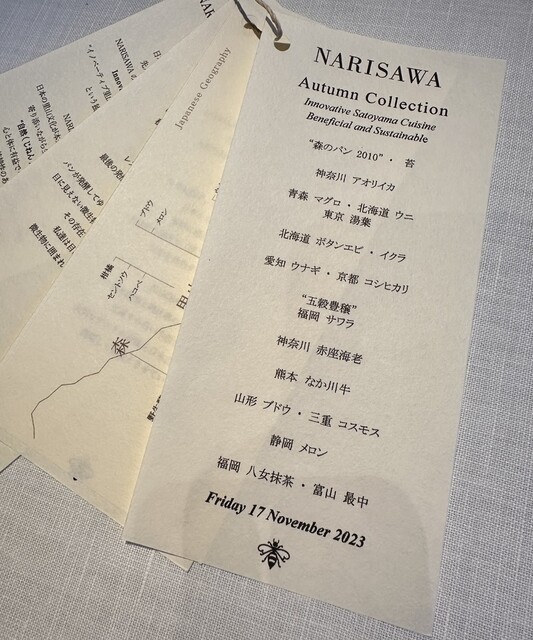 NARISAWA
Autumn Collection
Innovative Satoyama Cuisine
Beneficial and Sustainable
“森のパン 2010”・ 苔
神奈川 アオリイカ
青森 マグロ・北海道 ウニ
東京 湯葉
北海道 ボタンエビ・イクラ
愛知 ウナギ・京都 コシヒカリ
“五穀豊穣”
福岡 サワラ
神奈川 赤座海老
熊本 なか川牛
山形 ブドウ・三重 コスモス
静岡 メロン
福岡 八女抹茶・富山 最中
Friday 17 November 2023
Japanese Geography
ブドウ
メロン
柑橘
セントソウ
ハコベ
森
最後の発
パンが発酵してゆ
目に見えない微生
その存在
私達は目
微生物に囲まれ
NARISAWA
Innov
“イノベーティブ里
という独
日本の里山文化が本
寄り添いながら
“自然（じねん
心と体に有益で